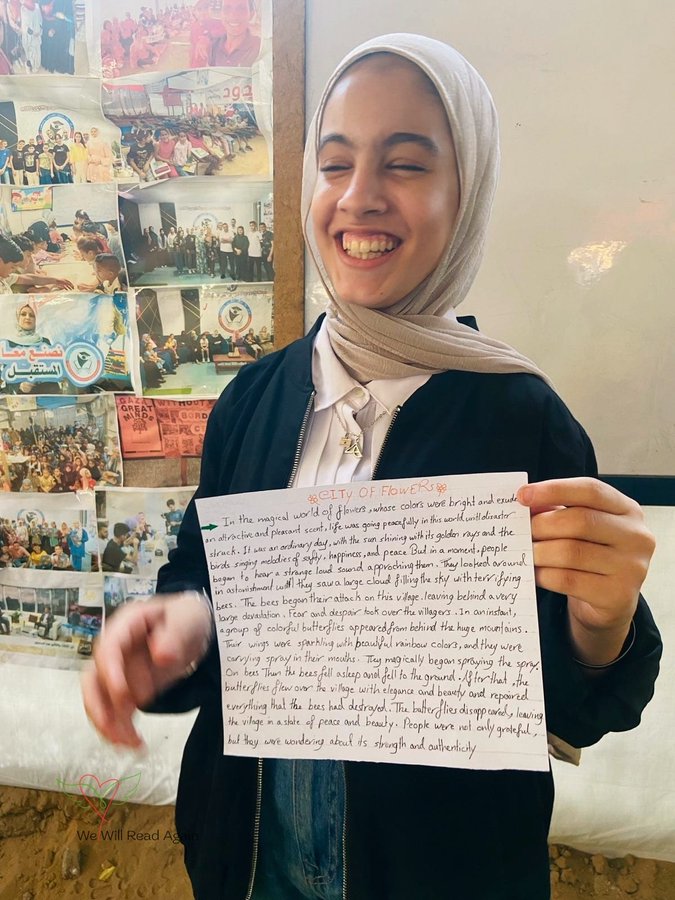 نصنع معا
المستقبل
GAZA
GREAT
MINDS
WITHOUT
CITY OF FLOWERS
In the magical world of flowers, whose colors were bright and exude
an attractive and pleasant scent, life was going peacefully in this world until disaster
struck. It was an ordinary day, with the sun shining with its golden rays and the
birds singing melodies of safty, happiness, and peace. But in a moment, people
began to hear a strange loud sound approching them. They looked around
in astonishment until they saw a large cloud filling the sky with terrifying
bees. The bees began their attack on this village, leaving behind a very
large devastation. Fear and despair took over the villagers. In an instant,
a group of colorful butterflies appeared from behind the huge mountains.
Their wings were sparkling with beautiful rainbow colors, and they were
carrying spray in their mouths. They magically began spraying the spray
On bees Then the bees fell asleep and fell to the ground. After that, the
butterflies flew over the village with elegance and beauty and repaired
everything that the bees had destroyed. The butterflies disappeared, leaving
the village in a state of peace and beauty. People were not only grateful,
but they were wondering about its strength and authenticity
We Will Read Again